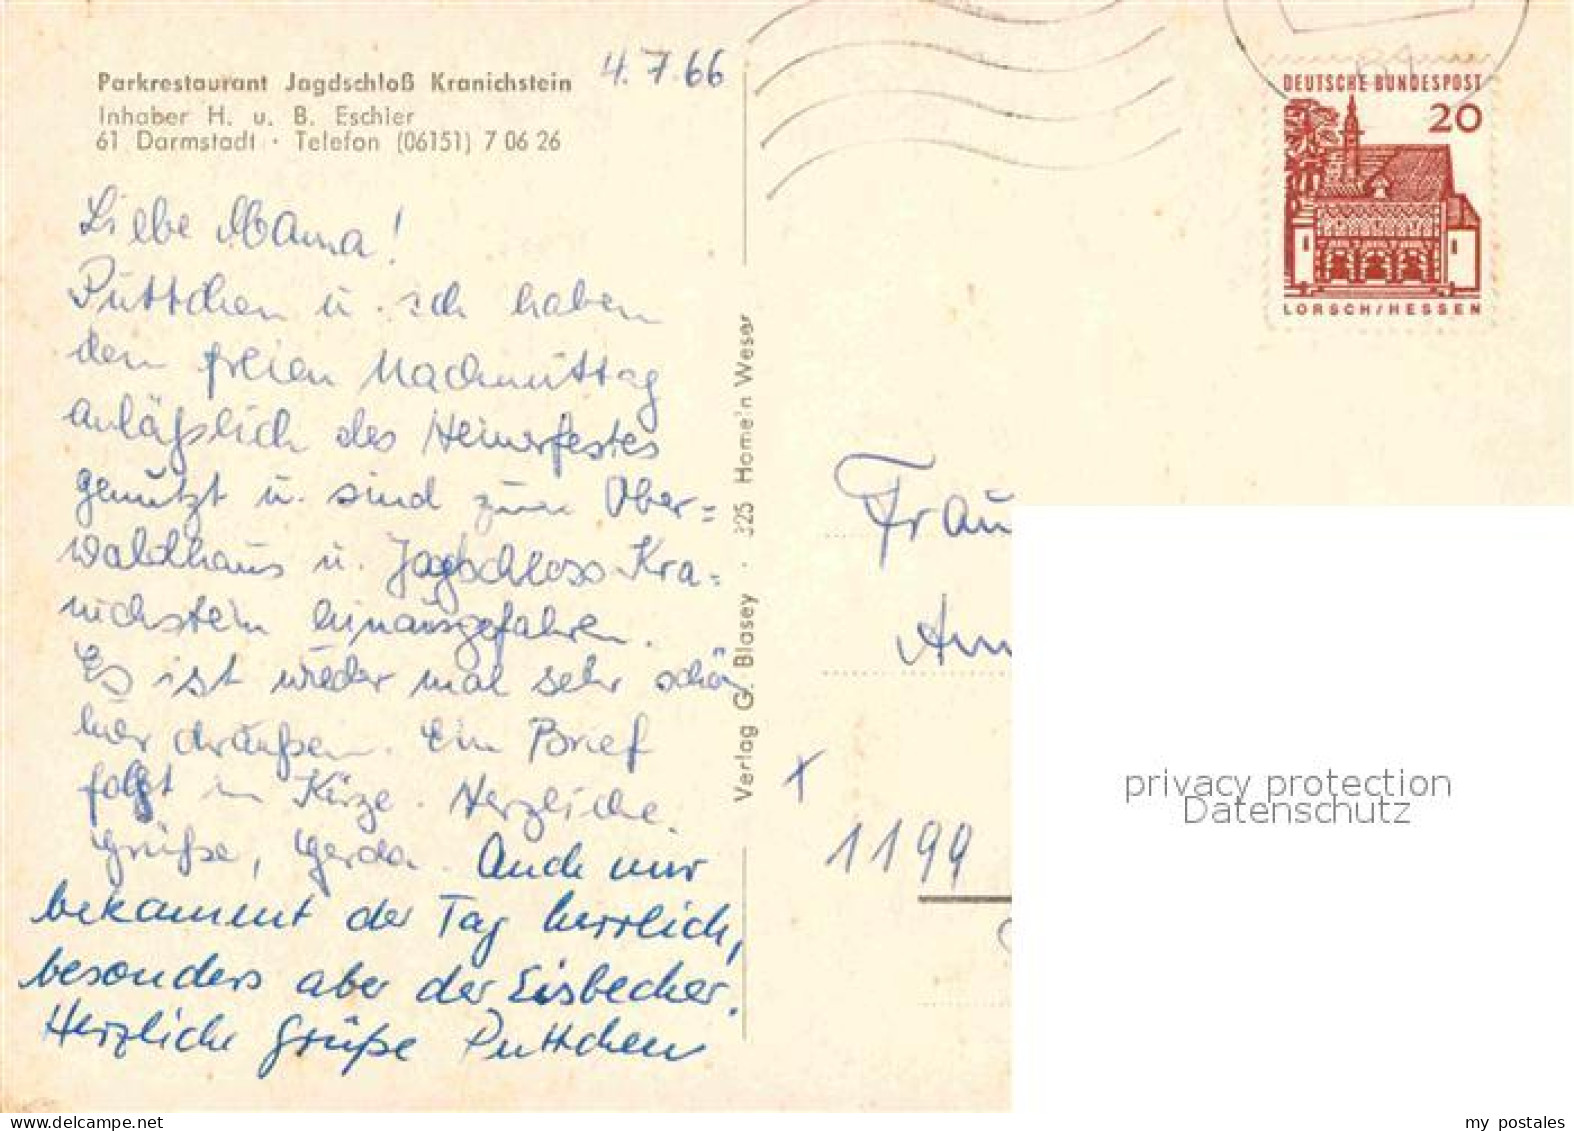 Parkrestaurant Jagdschloß Kranichstein
Inhaber H. u. B. Eschier
61 Darmstadt · Telefon (06151) 7 06 26
4.7.66
Liebe Mama!
Püttchen u. ich haben
den freien Nachmittag
anläßlich des Heinerfestes
genützt u. sind zum Ober=
waldhaus u. Jagdschloss Kra=
nichstein hinausgefahren.
Es ist wieder mal sehr schön
hier draußen. Ein Brief
folgt in Kürze. Herzliche
Grüße, Gerda. Auch mir
bekommt der Tag herrlich,
besonders aber der Eisbecher.
Herzliche Grüße Puttchen
Verlag G. Blasey · 325 Hameln Weser
DEUTSCHE BUNDESPOST
20
LORSCH/HESSEN
Frau
x
1199
privacy protection
Datenschutz
my postales